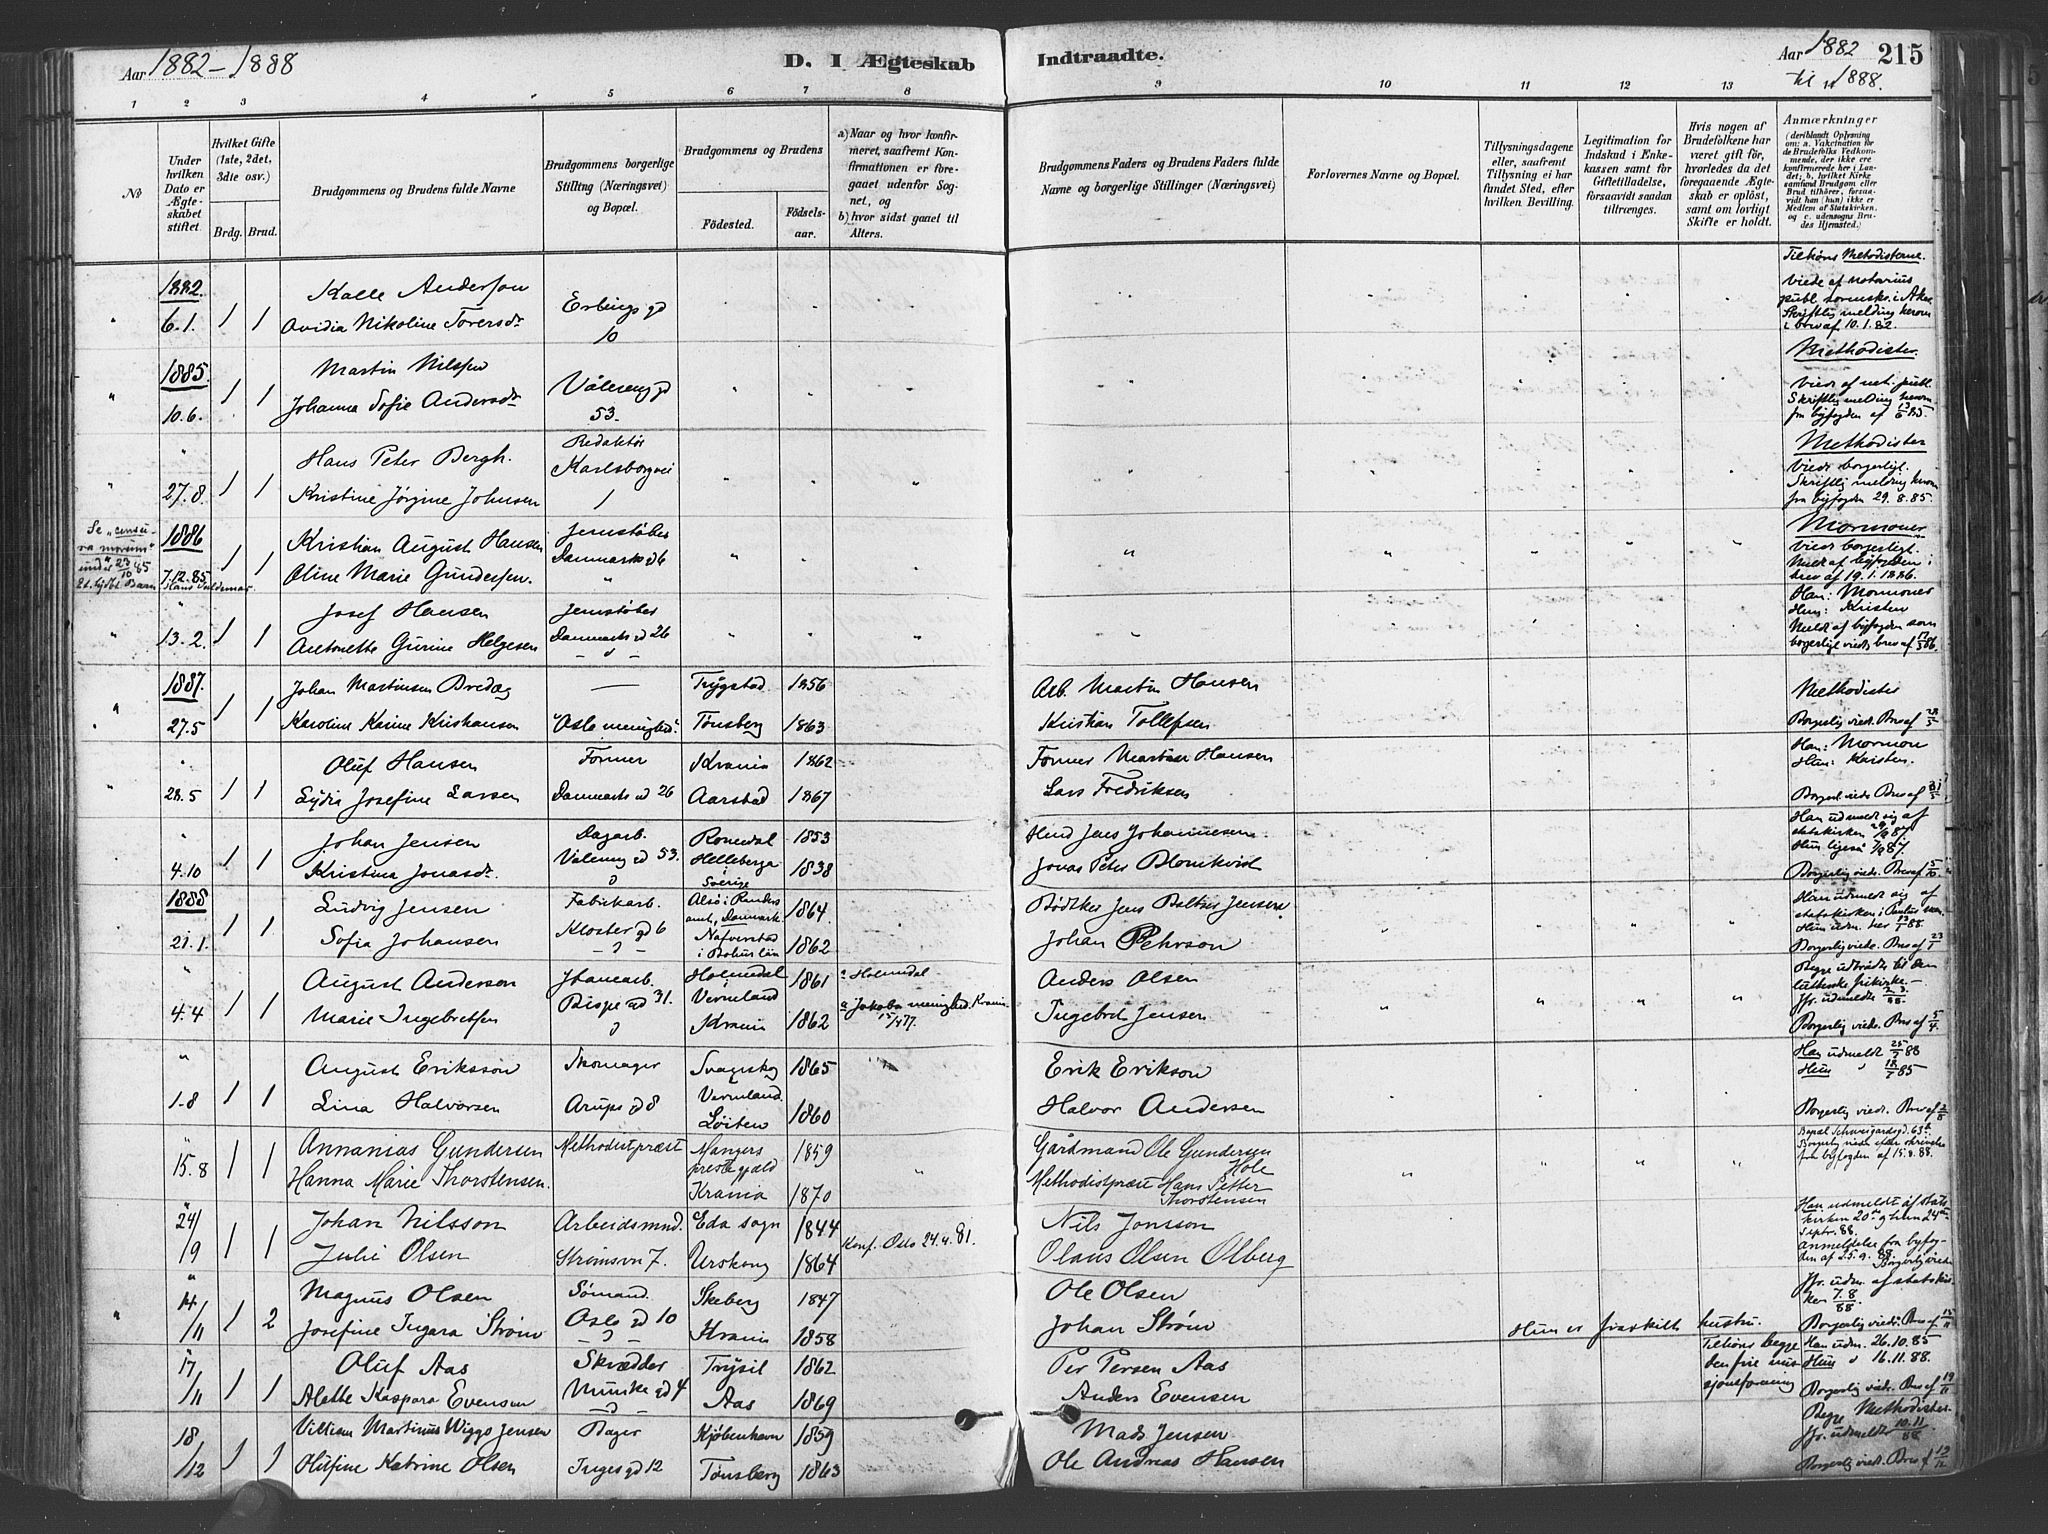 Aar 1882-1888
D. I Ægteskab Indtraadte.
Aar 1882 til 1888.
215
1 2 3 4 5 6 7 8 9 10 11 12 13 14
No
Under hvilken Dato er Ægteskabet stiftet.
Hvilket Gifte (1ste, 2det, 3die osv.)
Brdg. Brud.
Brudgommens og Brudens fulde Navne
Brudgommens borgerlige Stilling (Næringsvei) og Bopæl.
Brudgommens og Brudens
Födested.
Födselsaar.
a) Naar og hvor konfirmeret, saafremt Konfirmationen er foregaaet udenfor Sognet, og
b) hvor sidst gaaet til Alters.
Brudgommens Faders og Brudens Faders fulde Navne og borgerlige Stillinger (Næringsvei)
Forlovernes Navne og Bopæl.
Tillysningsdagene eller, saafremt Tillysning ei har fundet Sted, efter hvilken Bevilling.
Legitimation for Indskud i Enkekassen samt for Giftetilladelse, forsaavidt saadan tiltrænges.
Hvis nogen af Brudefolkene har været gift før, hvorledes da det foregaaende Ægteskab er oplöst, samt om lovligt Skifte er holdt.
Anmærkninger
(deriblandt Oplysning om: a. Vakcination for de Brudefolks Vedkommende, der ikke ere konfirmerede her i Landet; b. hvilket Kirkesamfund Brudgom eller Brud tilhörer, forsaavidt han (hun) ikke er Medlem af Statskirken, og c. udensogns Brudes Hjemsted.)
1882.
6.1. 1 1
Kalle Anderson
Avidia Nikoline Toversdr
Erlings gd 10
Tilhøre Methodisterne.
Viede af notarius publ.
Skriftlig melding herom i brev af 10.1.82.
1885.
10.6. 1 1
Martin Nilssen
Johanna Sofie Andersdr
Vålereng gd 53.
Methodister.
Viede af not. publ.
Skriftlig melding herom fra byfogden af 13/6 85.
27.8. 1 1
Hans Peter Bergh.
Kristine Jørgine Johnsen
Redaktør
Karlsborgvei 1
Methodister
Viede borgerligt.
Skriftlig melding herom fra byfogden 29.8.85.
Se "censura morum" under 23/10 85
1886
7.12.85 1 1
Kristian August Hansen
Oline Marie Gundersen.
Jernstøber
Danmarks gd 6
Mormoner
Viede borgerligt.
Meldt af byfogden i brev af 19.1.1886.
13.2. 1 1
Josef Hansen
Antonette Gurine Helgesen
Jernstøber
Danmarks gd 26
Han: Mormoner
Hun: Kristen
Meldt af byfogden som borgerligt viede brev af 17/3 86.
1887.
27.5 1 1
Johan Martinsen Bredag
Karoline Karine Kristiansen
"Oslo menighed".
Trygstad 1856
Tønsberg 1863
Arb. Martin Hansen
Kristian Tollefsen
Methodister
Borgerlig viede. Brev af 28/5
28.5 1 1
Oluf Hansen
Lydia Josefine Larsen
Former
Danmarks gd 26
Krania 1862
Aarstad 1867
Former Martin Hansen
Lars Fredriksen
Han: Mormon
Hun: Kristen.
Borgerl. viede Brev af 31/5
4.10 1 1
Johan Jensen
Kristina Jonasdr.
Dagarb.
Valereng gd 53.
Romedal 1853
Helleberga i Sverige 1838
Jens Johannesen
Jonas Peter Blomkvist
Han udmeldt sig af statskirken 29/9 87
Hun ligeså 7/9 87.
Borgerlig viede. Brev af 5/10
1888
21.1. 1 1
Ludvig Jensen
Sofia Johansen
Fabrikarb.
Kloster gd 6
Alsö i Randers amt, Danmark 1864
Nafverstad i Bohuslän 1862
Bødker Jens Baltser Jensen
Johan Pehrson
Han udmeldt sig af statskirken i Paulus men.
Hun udm. her 12/1 88.
Borgerlig viede. Brev af 23/1
4.4 1 1
August Anderson
Marie Ingebretsen
Jbanearb.
Bispe gd 31.
Holmedal i Vermland 1861
Krania 1862
a Holmedal
a Jakobs menighed. Krania 15/4 77.
Anders Olsen
Ingebret Jensen
Begge udtrådte til den lutherske frikirke.
Jfr. udmeldte 2.3/88.
Borgerlig viede. Brev af 5/4.
1.8 1 1
August Eriksson
Lina Halvorsen
Skomager
Arups gd 8
Svanskog Vermland. 1865
Løiten 1860
Erik Erikson
Halvor Andersen
Han udmeldt 25/7 88
Hun " 18/7 85
Borgerlig viede. Brev af 2/8
15.8 1 1
Annanias Gundersen
Hanna Marie Thorstensen.
Methodistpræst
Mangers prestegjæld 1859
Krania 1870
Gårdmand Ole Gundersen Hole
Methodistpræst Hans Petter Thorstensen
Bopæl Schweigaardsgd. 63b
Borgerlig viede efter skrivelse fra byfogden af 15.8.88.
24/9 1 1
Johan Nilsson
Julie Olsen
Arbeidsmnd.
Strømsvn 7.
Eda sogn 1844
Urskoug 1864
Konf. Oslo 24.4.81.
Nils Jonsson
Olaus Olsen Olberg
Han udmeldt af statskirken 20de og hun 24de Septbr. 88.
Anmeldelse fra byfogden af 25.9.88. Borgerlig viede
14/11 1 2
Magnus Olsen
Josefine Ingara Strøm
Sømand.
Oslo gd 10
Skeberg 1847
Krania 1858
Ole Olsen
Johan Strøm
Hun er fraskilt hustru.
Jfr. udm. af statskirken 7.8/88
Borgerlig viede. Brev af 15/11
17/11 1 1
Oluf Aas
Alette Kaspara Evensen
Skrædder
Munke gd 4
Trysil 1862
Aas 1869
Per Persen Aas
Anders Evensen
Tilhøre Begge den frie missjonsforening
Han udm. 26.10.85
Hun d 16.11.88.
Borgerlig viede. Brev af 19/11
18/12 1 1
Villiam Martinus Wiggo Jensen
Olufine Katrine Olsen
Bager
Inges gd 12
Kjøbenhavn 1859
Tønsberg 1863
Mads Jensen
Ole Andreas Hansen
Begge Methodister.
Jfr. udmeldte 10.11/88
Borgerlig viede. Brev af 19/12